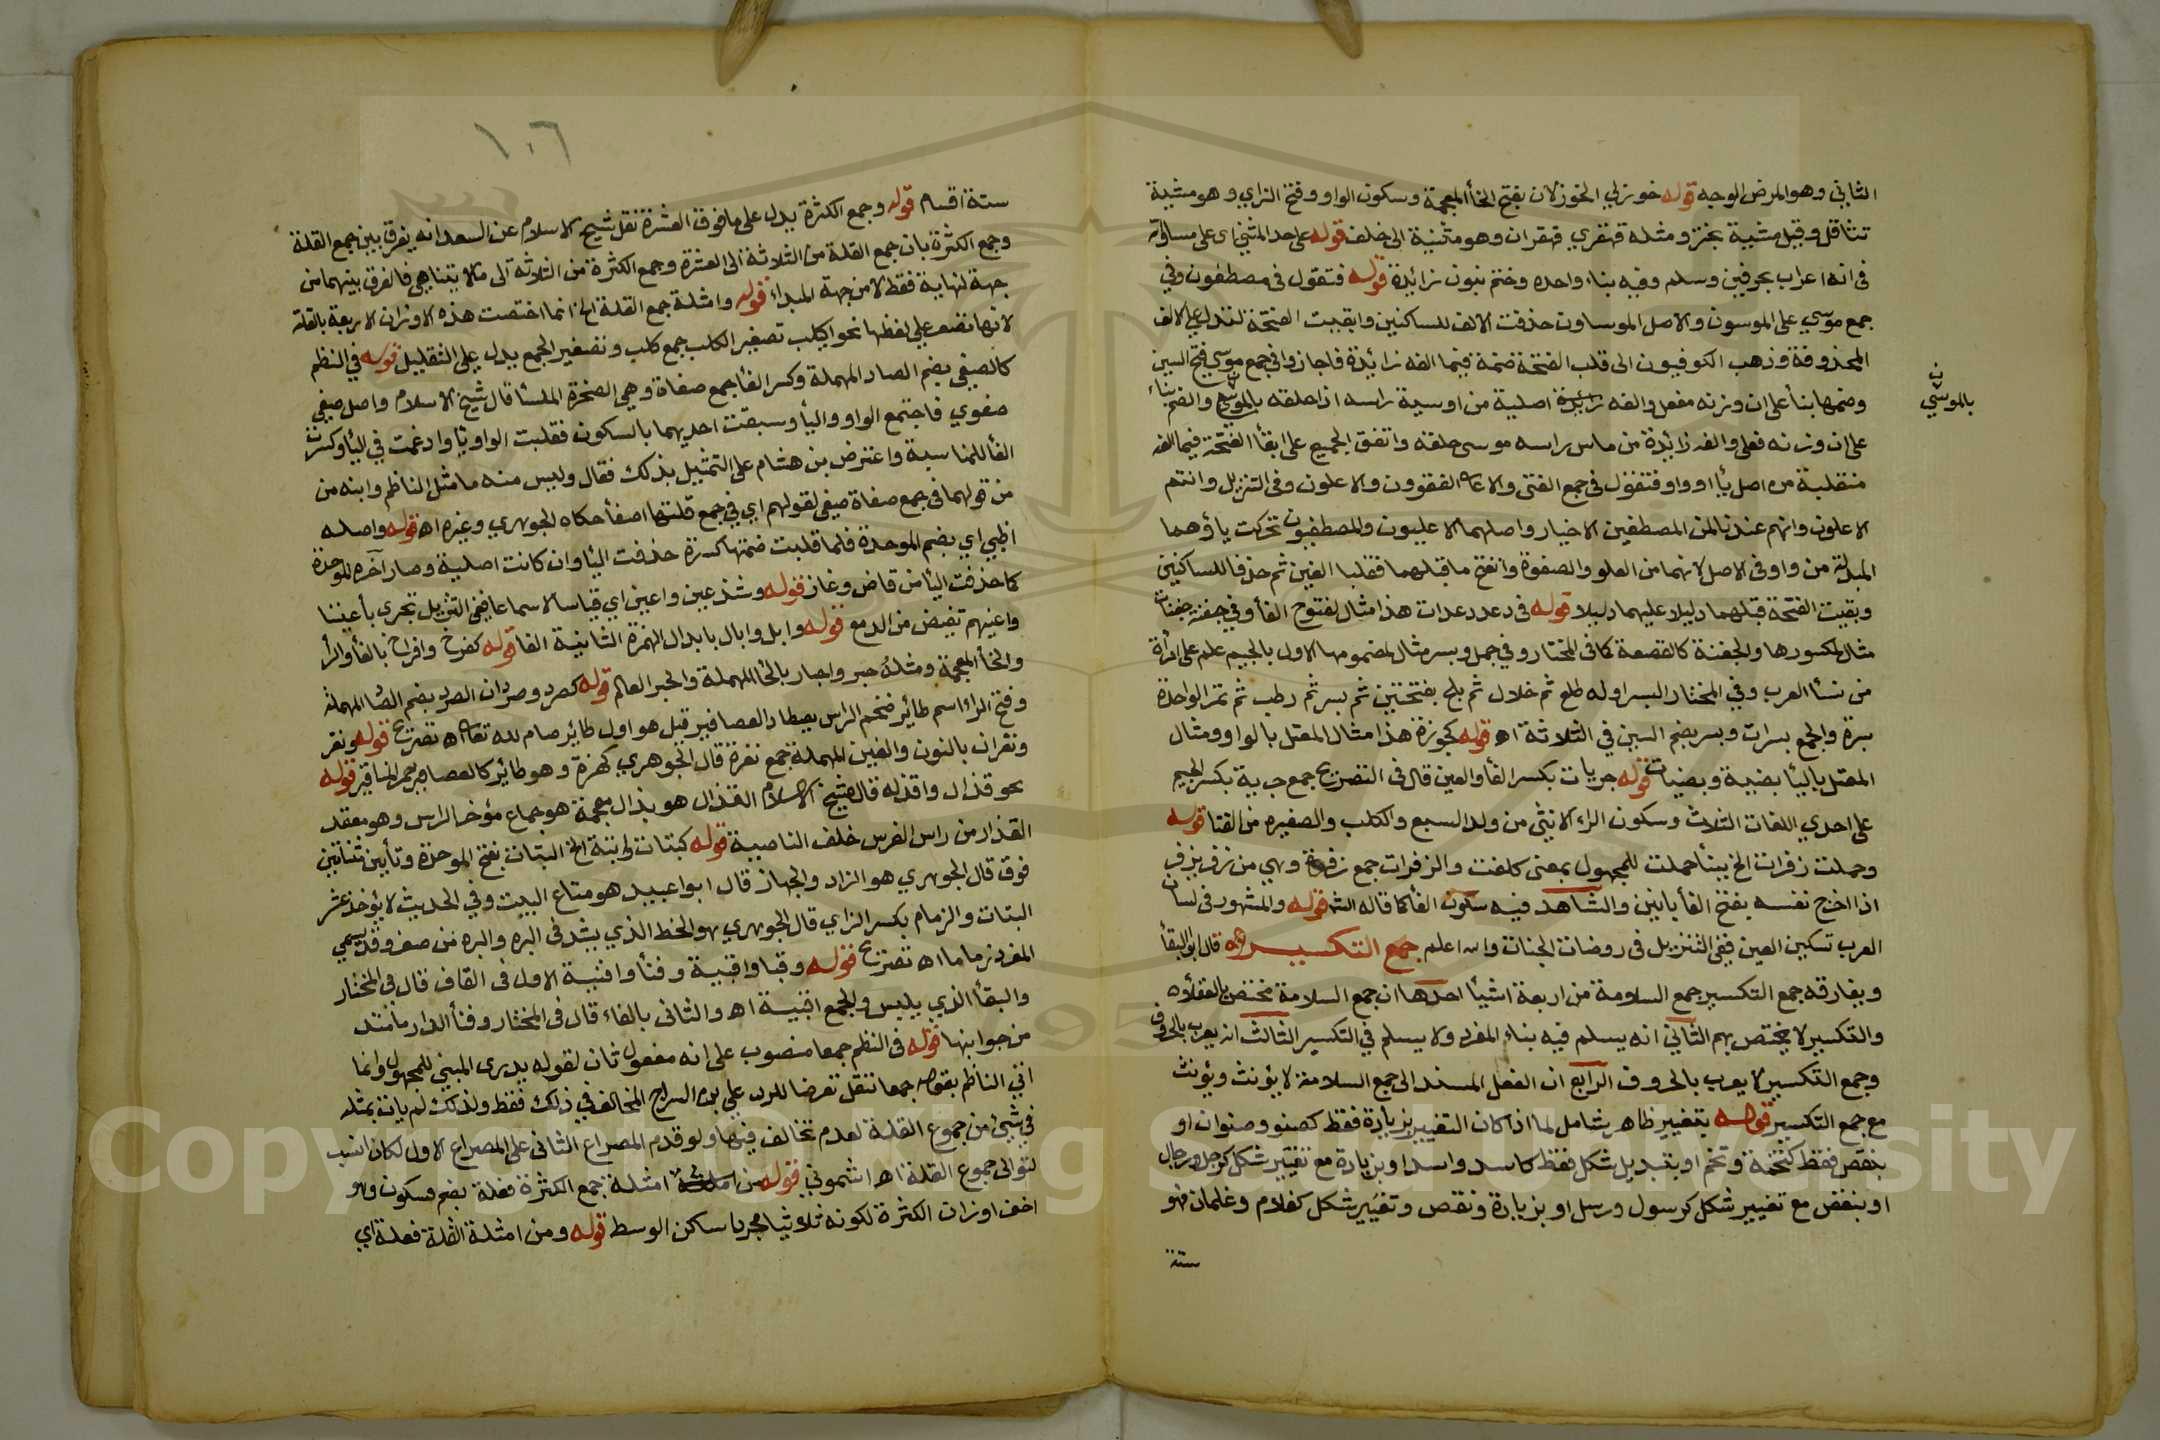 الثاني وهو المرض الوجه قوله خوزلي الخوزلان بفتح الخأ المعجمة وسكون الواو وفتح الزاي وهو مشية
تثاقل وقيل مشية بخز ومثله قهقري قهقران وهو مثنية الى خلف قوله على حد المثني اى على مساواته
فى انه اعراب بحرفين وسلم وفيه بناء واحده وختم بنون زائيدة قوله فتقول فى مصطفون وفي
جمع موسي على الموسون والاصل الموساون حذفت الالف للساكنين وابقيت الفتحة لتدل على الالف
المحذوفة وذهب الكوفيون الى قلب الفتحة ضمة فيما الفه زائيدة فاجازوا في جمع موسى فتح السين
وضمها بنأ على ان وزنه مفعل والفه زائدة اصلية من اوسية راسه اذا حلقه بالموسي والضم بناء
على ان وزنه فعلى والفه زائدة من ماس راسه موسى حلقه واتفق الجميع على ابقأ الفتحة فيما الفه
منقلبة من اصل يأ او واو فتقول فى جمع الفتى والاعلى الفقوون والاعلون وفى التنزيل وانتم
الاعلون وانهم عندنا لمن المصطفين الاخيار واصلهما الاعليون والمصطفيون تحركت ياؤهما
المبدلة من واو فى الاصل لانهما من العلو والصفوة وانفتح ما قبلهما فقلبا الفين ثم حذفا للساكنين
وبقيت الفتحة قبلهما دليلا عليهما دليلا قوله فى دعد دعدات هذا مثال لمفتوح الفأ وفي جفنة جفنات
مثال لمكسورها والجفنة كالقصعة كما فى المختار وفي جمل وبسر مثال لمضمومها الاول بالجيم علم على امرأة
من نسأ العرب وفي المختار البسر اوله طلع ثم خلال ثم بلح بفتحتين ثم بسر ثم رطب ثم تمر الواحدة
بسرة والجمع بسرات وبسر بضم السين في الثلاثة اه قوله كجوزة هذا مثال المعتل بالواو ومثال
المعتل باليأ بضية وبضيات قوله جريات بكسر الفأ والعين قال فى التصريح جمع جرية بكسر الجيم
على احدي اللغات الثلاث وسكون الراء الانيثي من ولد السبع والكلب والصغيره من القثا قوله
وحملت زفرات الخ ببنأ حملت للمجهول بمعنى كلفت والزفرات جمع زفرة وهي من زفر يزفر
اذا اخرج نفسه بفتح الفأ يا بنين والشاهد فيه سكون الفأ كما قاله الشم قوله والمشهور فى لسان
العرب تسكين العين ففى التنزيل فى روضات الجنات والله اعلم جمع التكسير قال ابو البقأ
ويفارقه جمع التكسير جمع السلامة من اربعة اشيأ احدها ان جمع السلامة مختص بالعقلأ
والتكسير لا يختص بهم الثاني انه يسلم فيه بناء المفرد ولا يسلم في التكسير الثالث انه يعرب بالحروف
وجمع التكسير لا يعرب بالحروف الرابع ان الفعل المسند الى جمع السلامة لا يؤنث ويؤنث
مع جمع التكسير قوله بتغيير ظاهر شامل لما اذا كان التغيير بزيادة فقط كصنو وصنوان او
بنقص فقط كتخمة وتخم او بتبديل شكل فقط كاسد واسد او بزيادة مع تغيير شكل كرجل ورجال
او بنقص مع تغيير شكل كرسول ورسل او بزيادة ونقص وتغيير شكل كغلام وغلمان فهو
ستة
بالموسي
١٠٦
ستة اقسام قوله وجمع الكثرة يدل على ما فوق العشرة نقل شيخ الاسلام عن السعد انه يفرق بين جمع القلة
وجمع الكثرة بان جمع القلة من الثلاثة الى العشرة وجمع الكثرة من الثلاثة الى مالا يتناهي فالفرق بينهما من
جهة النهاية فقط لا من جهة المبداء قوله وامثلة جمع القلة الخ انما اختصت هذه الاوزان الاربعة بالقلة
لانها تصغر على لفظها نحو اكيلب تصغير الكلب جمع كلب وتصغير الجمع يدل على التقليل قوله في النظم
كالصفي بضم الصاد المهملة وكسر الفأ جمع صفاة وهي الصخرة الملسأ قال شيخ الاسلام واصل صفي
صفوي فاجتمع الواو واليأ وسبقت احديهما بالسكون فقلبت الواو يأ وادغمت في اليأ وكسرت
الفأ للمناسبة واعترض بن هشام على التمثيل بذلك فقال وليس منه ما مثل الناظم وابنه من
من قولهما فى جمع صفاة صفي لقولهم اي في جمع قلتها اصفأ حكاه الجوهري وغيره اه قوله واصله
اظبي اي بضم الموحدة فلما قلبت ضمتها كسرة حذفت اليأ وان كانت اصلية وصار آخره للموحدة
كما حذفت اليأ من قاض وغاز قوله وشذ عين واعين اي قياسا لا سماعا ففي التنزيل تجرى باعيننا
واعينهم تفيض من الدمع قوله وابل وابال بابدال الهمزة الثانية الفا قوله كفرخ وافراخ بالفأ والرأ
والخأ المعجمة ومثله حبر واحبار بالحا المهملة والحبر العالم قوله كصرد وصردان الصرد بضم الصا المهملة
وفتح الراء اسم طائير ضخم الراس يصطاد العصافير قيل هو اول طائير صام لله تعالى اه تصريح قوله ونغر
ونغران بالنون والغين المهملة جمع نغرة قال الجوهري كهمزة وهو طائير كالعصافير حمر المناقير قوله
نحو قذال واقذله قال شيخ الاسلام القذال هو بذال معجمة هو جماع مؤخر الراس وهو معقد
القذار من راس الفرس خلف الناصية قوله كبتات وابتة الخ البتات بفتح الموحدة وتأيين مثناتين
فوق قال الجوهري هو الزاد والجهاز قال ابو اعبيد هو متاع البيت وفي الحديث لا يؤخذ عشر
البتات والزمام بكسر الزاي قال الجوهري هو الخط الذي يشد فى البره والبره من صفر وقد يسمي
المفرد زماما اه تصريح قوله وقبا واقبية وفنأ وافنية الاول فى القاف قال فى المختار
والبقأ الذي يلبس والجمع اقبية اه والثانى بالفاء قال فى المختار وفنأ الدار ما امتد
من جوانبها قوله فى النظم جمعا منصوب على انه مفعول ثان لقوله يدرى المبني للمجهول وانما
اتي الناظم بقوله جمعا تنقل تعرضا للرد على بن السراج المخالف في ذلك فقط ولذلك لم يات بمثله
فى شيئ من جموع القلة لعدم تخالف فيها ولو قدم المصراع الثانى على المصراع الاول لكان انسب
لتوالى جموع القلة اه اشموني قوله من امثلة جمع الكثرة فعلة بضم فسكون وهو
اخف اوزان الكثرة لكونه ثلاثيا مجردا ساكن الوسط قوله ومن امثلة القلة فعلة اي
Copyright © King Saud University
1957